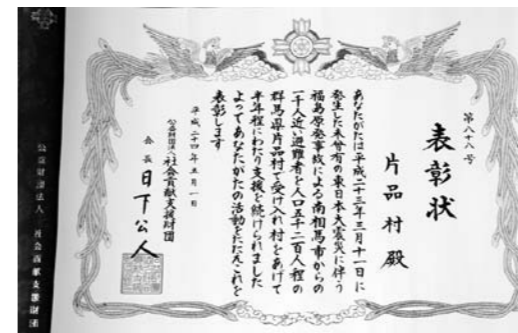 第八十八号
表彰状
片品村殿
あなたがたは平成二十三年三月十一日に
発生した未曾有の東日本大震災に伴う
福島原発事故による南相馬市からの
一千人近い避難者を人口五千二百人程の
群馬県片品村で受け入れ村をあげて
半年程にわたり支援を続けられました
よってあなたがたの活動をたたえこれを
表彰します
平成二十四年五月一日
公益財団法人社会貢献支援財団
会長日下公人
公益財団法人 社会貢献支援財団